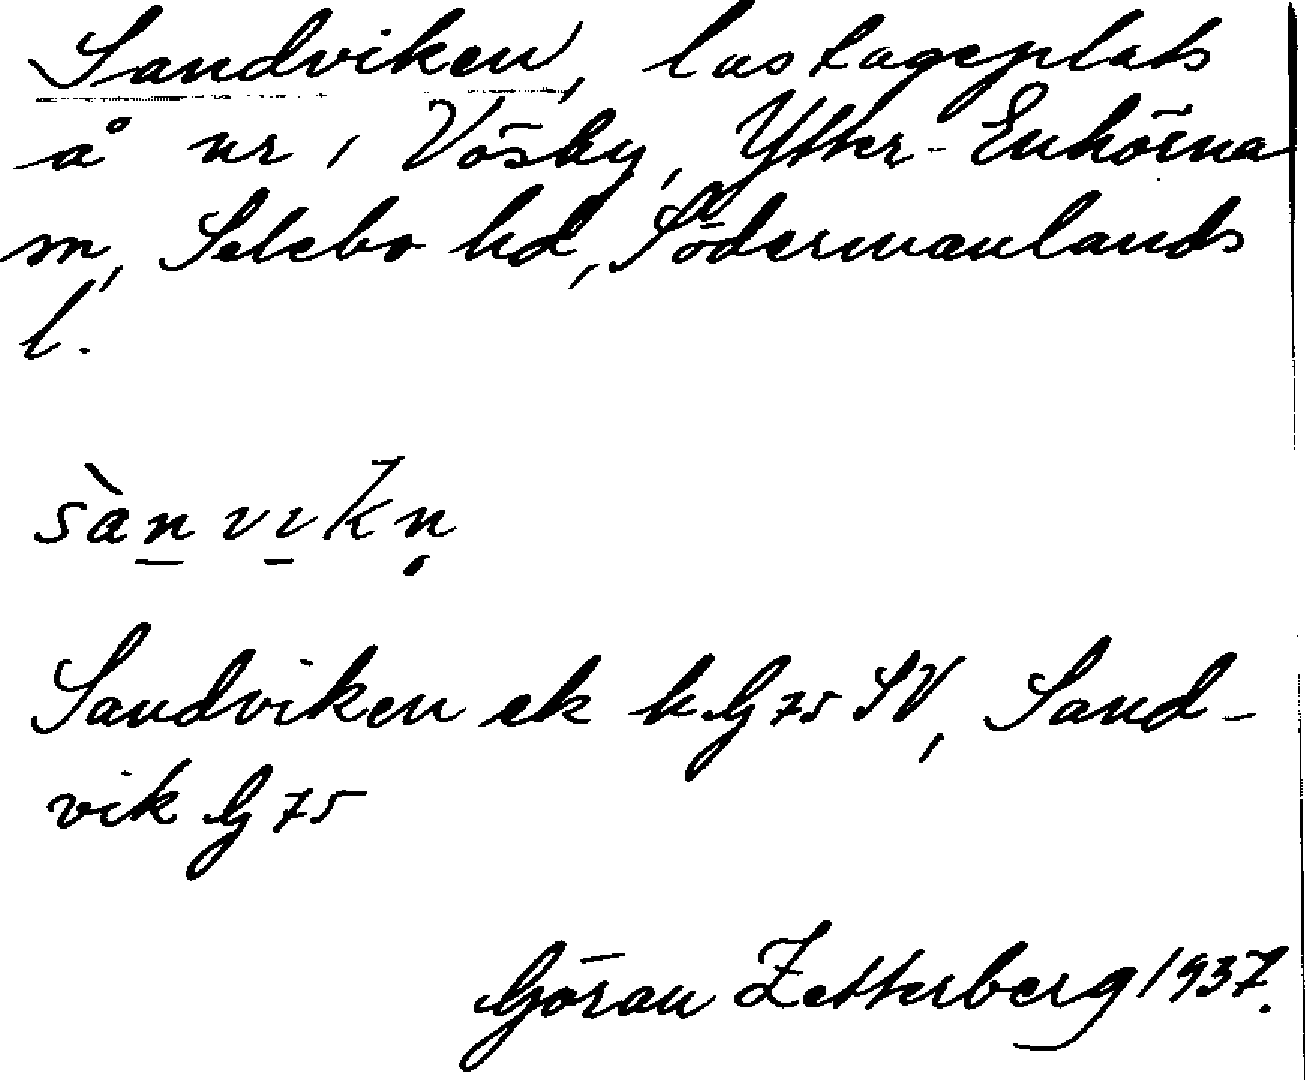 Sandviken, lastageplats
å nr 1 Vösby, Ytter-Enhörna
sn, Selebo hd, Södermanlands
l.
sànvikṇ
Sandviken ek k. G 75 SV, Sand-
vik G 75
Göran Zetterberg 1937.